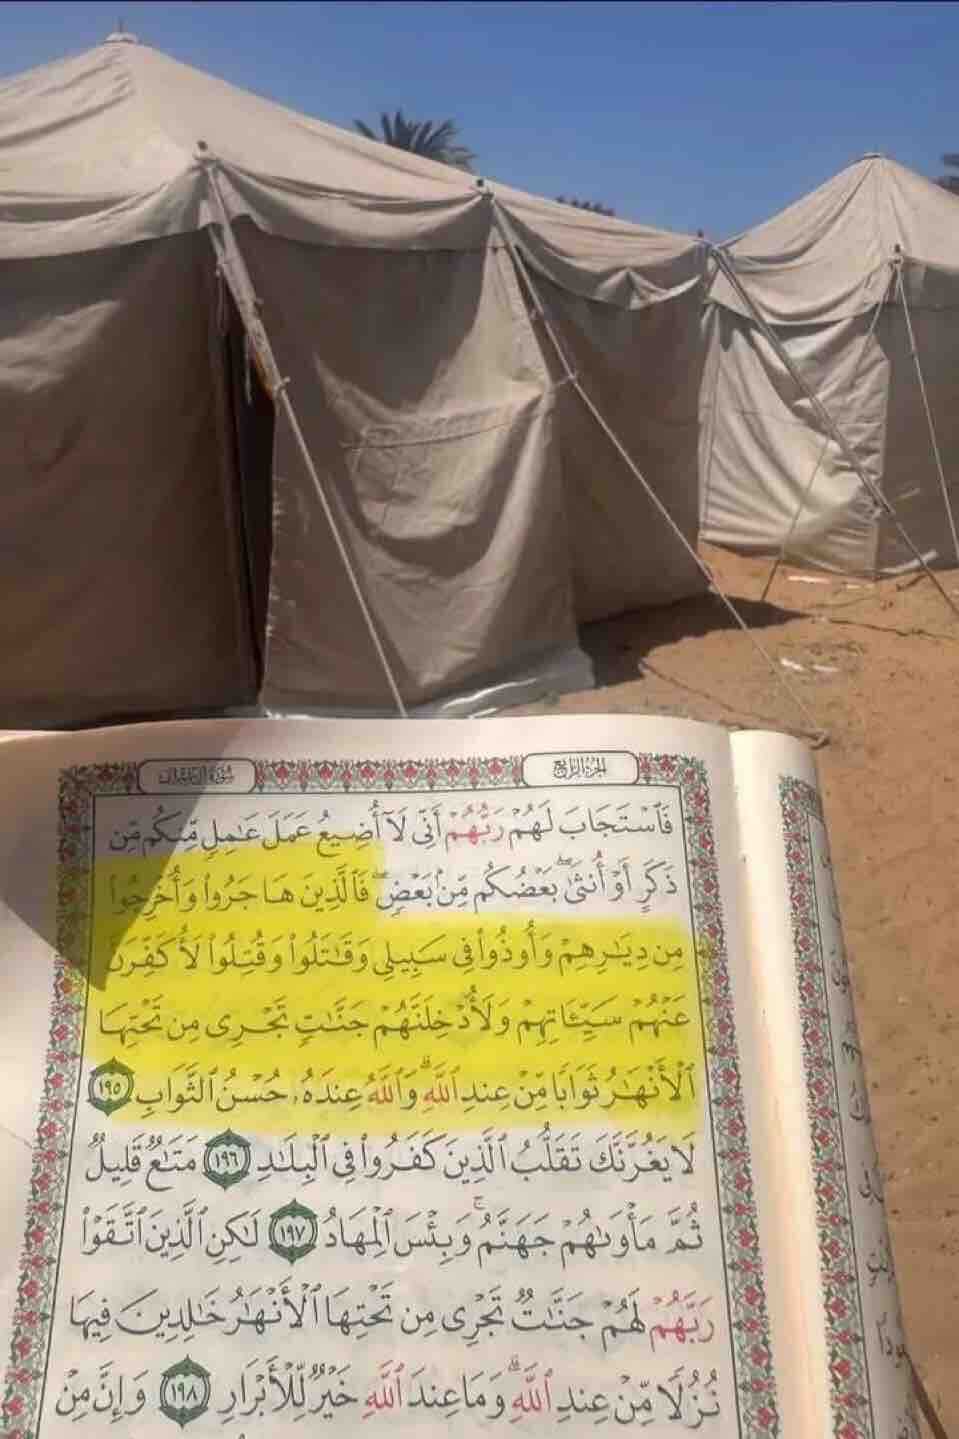 الجزء الرابع
سورة آل عمران
فَٱسْتَجَابَ لَهُمْ رَبُّهُمْ أَنِّى لَآ أُضِيعُ عَمَلَ عَٰمِلٍ مِّنكُم مِّن
ذَكَرٍ أَوْ أُنثَىٰ ۖ بَعْضُكُم مِّنۢ بَعْضٍ ۖ فَٱلَّذِينَ هَاجَرُوا۟ وَأُخْرِجُوا۟
مِن دِيَٰرِهِمْ وَأُوذُوا۟ فِى سَبِيلِى وَقَٰتَلُوا۟ وَقُتِلُوا۟ لَأُكَفِّرَنَّ
عَنْهُمْ سَيِّـَٔاتِهِمْ وَلَأُدْخِلَنَّهُمْ جَنَّٰتٍ تَجْرِى مِن تَحْتِهَا
ٱلْأَنْهَٰرُ ثَوَابًا مِّنْ عِندِ ٱللَّهِ ۗ وَٱللَّهُ عِندَهُۥ حُسْنُ ٱلثَّوَابِ ١٩٥
لَا يَغُرَّنَّكَ تَقَلُّبُ ٱلَّذِينَ كَفَرُوا۟ فِى ٱلْبِلَٰدِ ١٩٦ مَتَٰعٌ قَلِيلٌ
ثُمَّ مَأْوَىٰهُمْ جَهَنَّمُ ۚ وَبِئْسَ ٱلْمِهَادُ ١٩٧ لَٰكِنِ ٱلَّذِينَ ٱتَّقَوْا۟
رَبَّهُمْ لَهُمْ جَنَّٰتٌ تَجْرِى مِن تَحْتِهَا ٱلْأَنْهَٰرُ خَٰلِدِينَ فِيهَا
نُزُلًا مِّنْ عِندِ ٱللَّهِ ۗ وَمَا عِندَ ٱللَّهِ خَيْرٌ لِّلْأَبْرَارِ ١٩٨ وَإِنَّ مِنْ